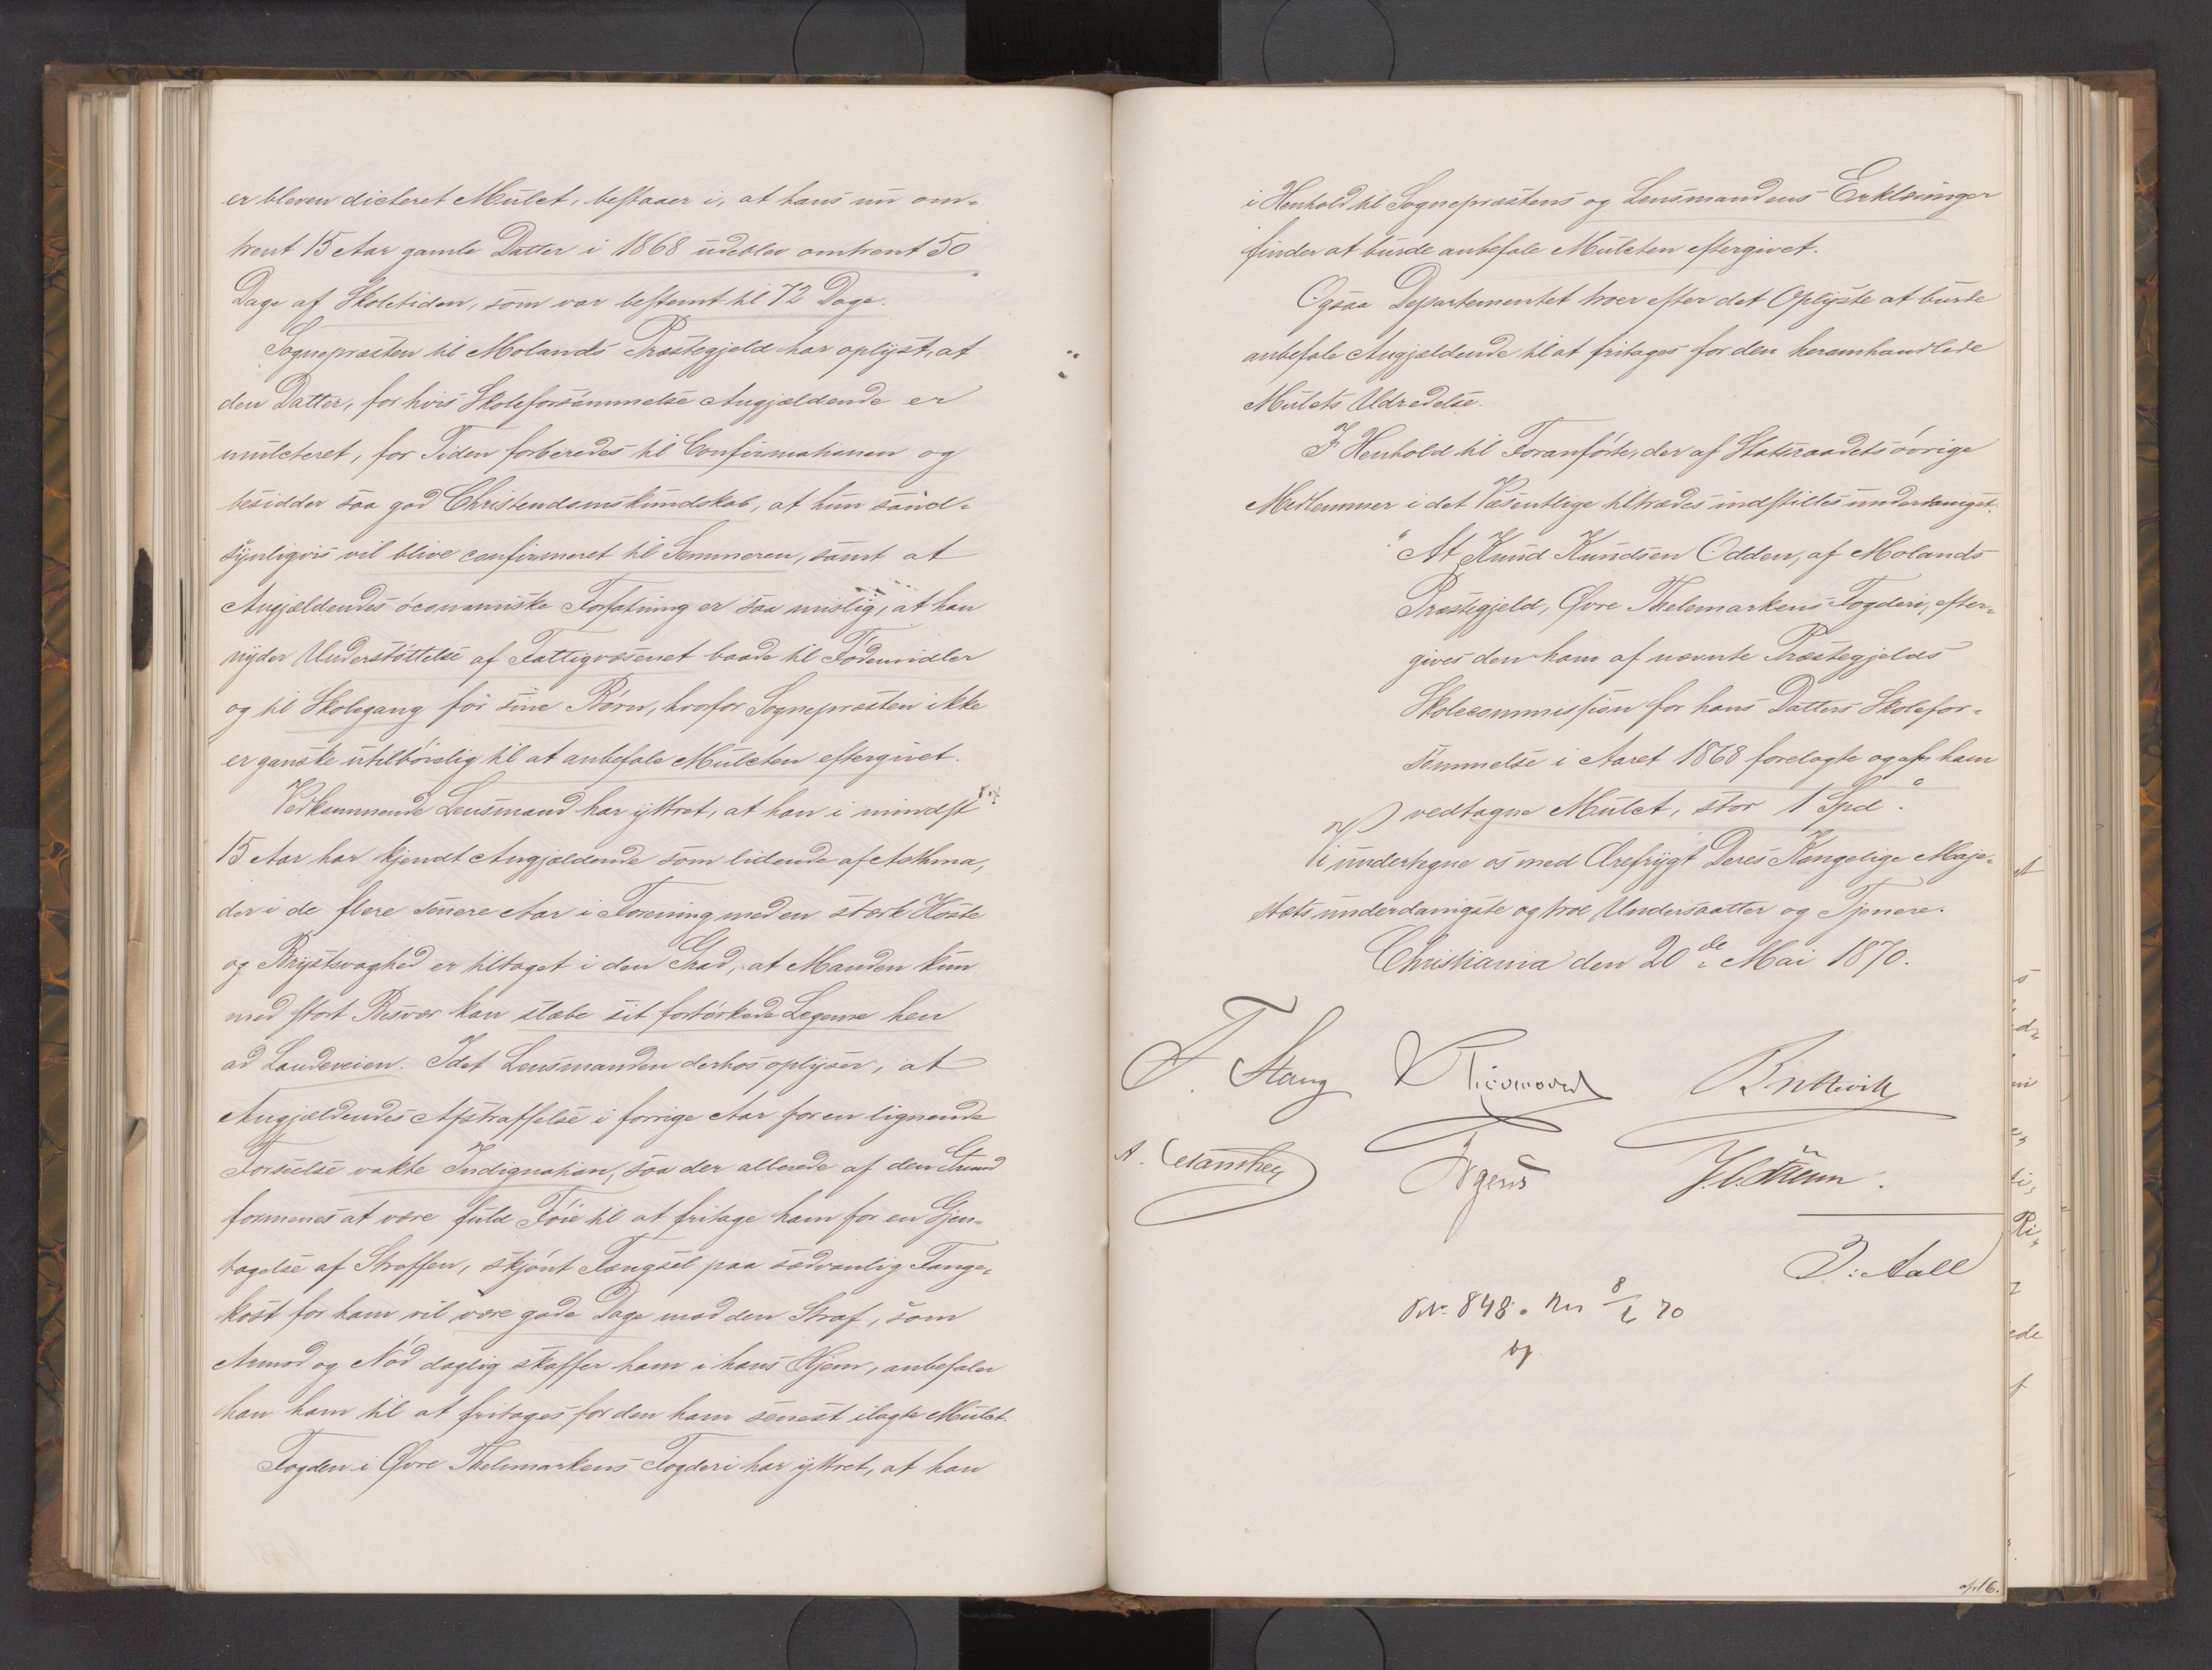 er bleven dicteret Mulct, bestaaer i, at hans nu om-
trent 15 Aar gamle Datter i 1868 udeblev omtrent 50
Dage af Skoletiden, som var bestemt til 72 Dage.
Sognepræsten til Molands Præstegjeld har oplyst, at
den Datter, for hvis Skoleforsømmelse Angjældende er
mulcteret, for Tiden forberedes til Confirmationen og
besidder saa god Christendomskundskab, at hun sand-
synligvis vil blive confirmeret til Sommeren, samt at
Angjældendes öconomiske Forfatning er saa mislig, at han
nyder Understöttelse af Fattigvæsenet baade til Födemidler
og til Skolegang for sine Börn, hvorfor Sognepræsten ikke
er ganske utilböielig til at anbefale Mulcten eftergivet.
Vedkommende Lensmand har yttret, at han i mindst
15 Aar har kjendt Angjældende som lidende af Asthma,
der i de flere senere Aar i Forening med en stærk Hoste
og Brystsvaghed er tiltaget i den Grad, at Manden kun
med stort Besvær kan slæbe sit fortörkede Legeme hen
ad Landeveien. Idet Lensmanden derhos oplyser, at
Angjældendes Afstraffelse i forrige Aar for en lignende
Forseelse vakte Indignation, saa der allerede af den Grund
formenes at være fuld Föie til at fritage ham for en Gjen-
tagelse af Straffen, skjönt Fængsel paa sædvanlig Fange-
kost for ham vil være gode Dage mod den Straf, som
Armod og Nöd daglig skaffer ham i hans Hjem, anbefaler
han ham til at fritages for den ham senest ilagte Mulct.
Fogden i Øvre Thelemarkens Fogderi har yttret, at han
i Henhold til Sognepræstens og Lensmandens Erklæringer
finder at burde anbefale Mulcten eftergivet.
Ogsaa Departementet troer efter det Oplyste at burde
anbefale Angjældende til at fritages for den heromhandlede
Mulcts Udredelse.
I Henhold til Foranförte, der af Statsraadets övrige
Medlemmer i det Væsentlige tiltrædes indstilles underdanigst:
"At Knud Knudsen Odden, af Molands
Præstegjeld, Øvre Thelemarkens Fogderi, efter-
gives den ham af nævnte Præstegjelds
Skolecommission for hans Datters Skolefor-
sömmelse i Aaret 1868 forelagte og af ham
vedtagne Mulct, stor 1 Spd."
Vi undertegne os med Ærefrygt Deres Kongelige Maje-
stæts underdanigste og troe Undersaatter og Tjenere.
Christiania den 20de Mai 1870.
F. Stang
A. Manthey Irgens
J. Aall
848. 70